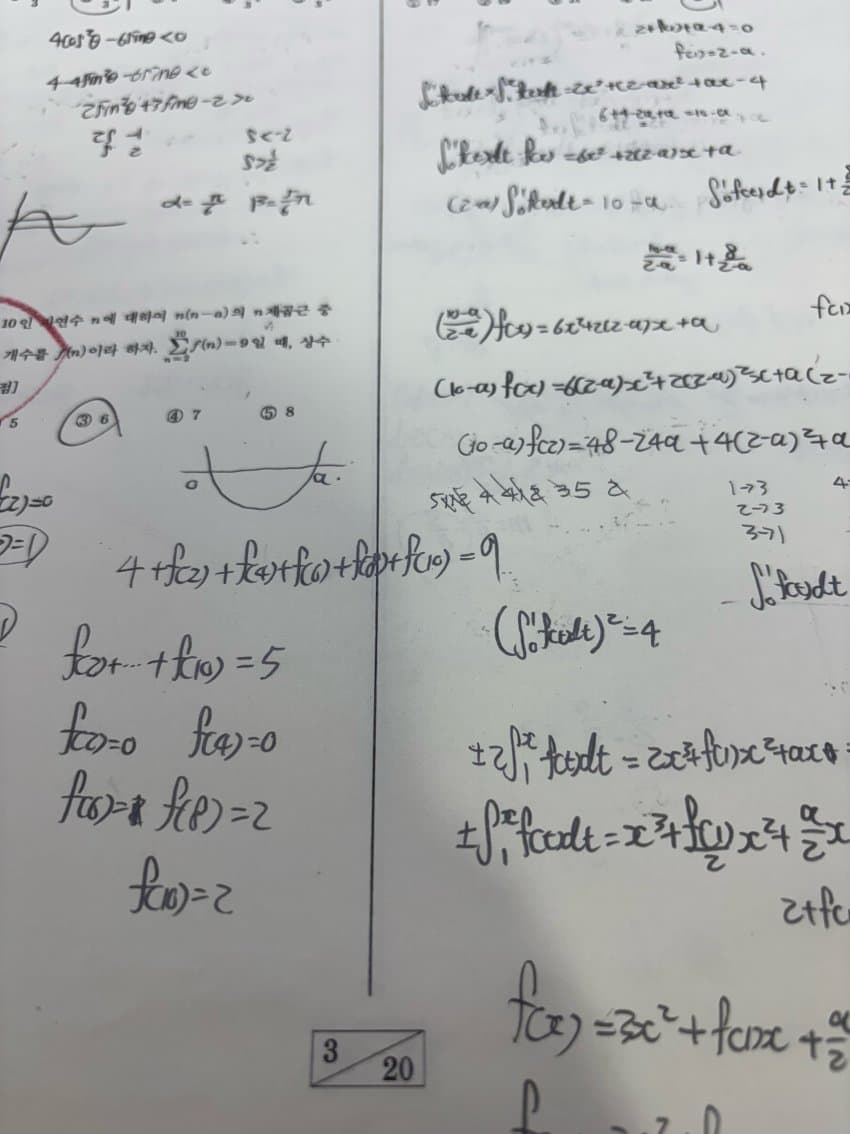 4cos²θ - 6sinθ < 0
4-4sin²θ - 6sinθ < 0
2sin²θ + 3sinθ - 2 > 0
2S -1
S 2
S < -2
S > 1/2
α = π/6 β = 5/6 π
10인 자연수 n에 대하여 n(n-a)의 n제곱근 중
개수를 f(n)이라 하자. ∑_{n=2}^{10} f(n) = 9일 때, 상수
점]
5 ③ 6 ④ 7 ⑤ 8
0 a.
f(2)=0
)=1
4+f(2)+f(4)+f(6)+f(8)+f(10)=9
f(2)+…+f(10)=5
f(2)=0 f(4)=0
f(6)=1 f(8)=2
f(10)=2
3
20
2+f(1)+a-4=0
f(1)=2-a.
∫₀¹f(t)dt × ∫₁ˣ f(t)dt = 2x³+(2-a)x²+ax-4
∫₀¹f(t)dt f(x) = 6x²+2(2-a)x+a
(2-a)∫₀¹f(t)dt = 10-a
∫₀¹f(t)dt = 1+
(10-a)/(2-a) = 1+8/(2-a)
f(1)
((10-a)/(2-a))f(x) = 6x²+2(2-a)x+a
(10-a)f(x) = 6(2-a)x²+2(2-a)²x+a(2-
(10-a)f(2) = 48-24a+4(2-a)²+a
1→3
2→3
3→1
∫₀¹f(t)dt
(∫₀¹f(t)dt)²=4
±2∫₁ˣ f(t)dt = 2x³+f(1)x²+ax+
±∫₁ˣ f(t)dt = x³+f(1)/2 x²+a/2 x
2+f(
f(x)=3x²+f(1)x+a/2